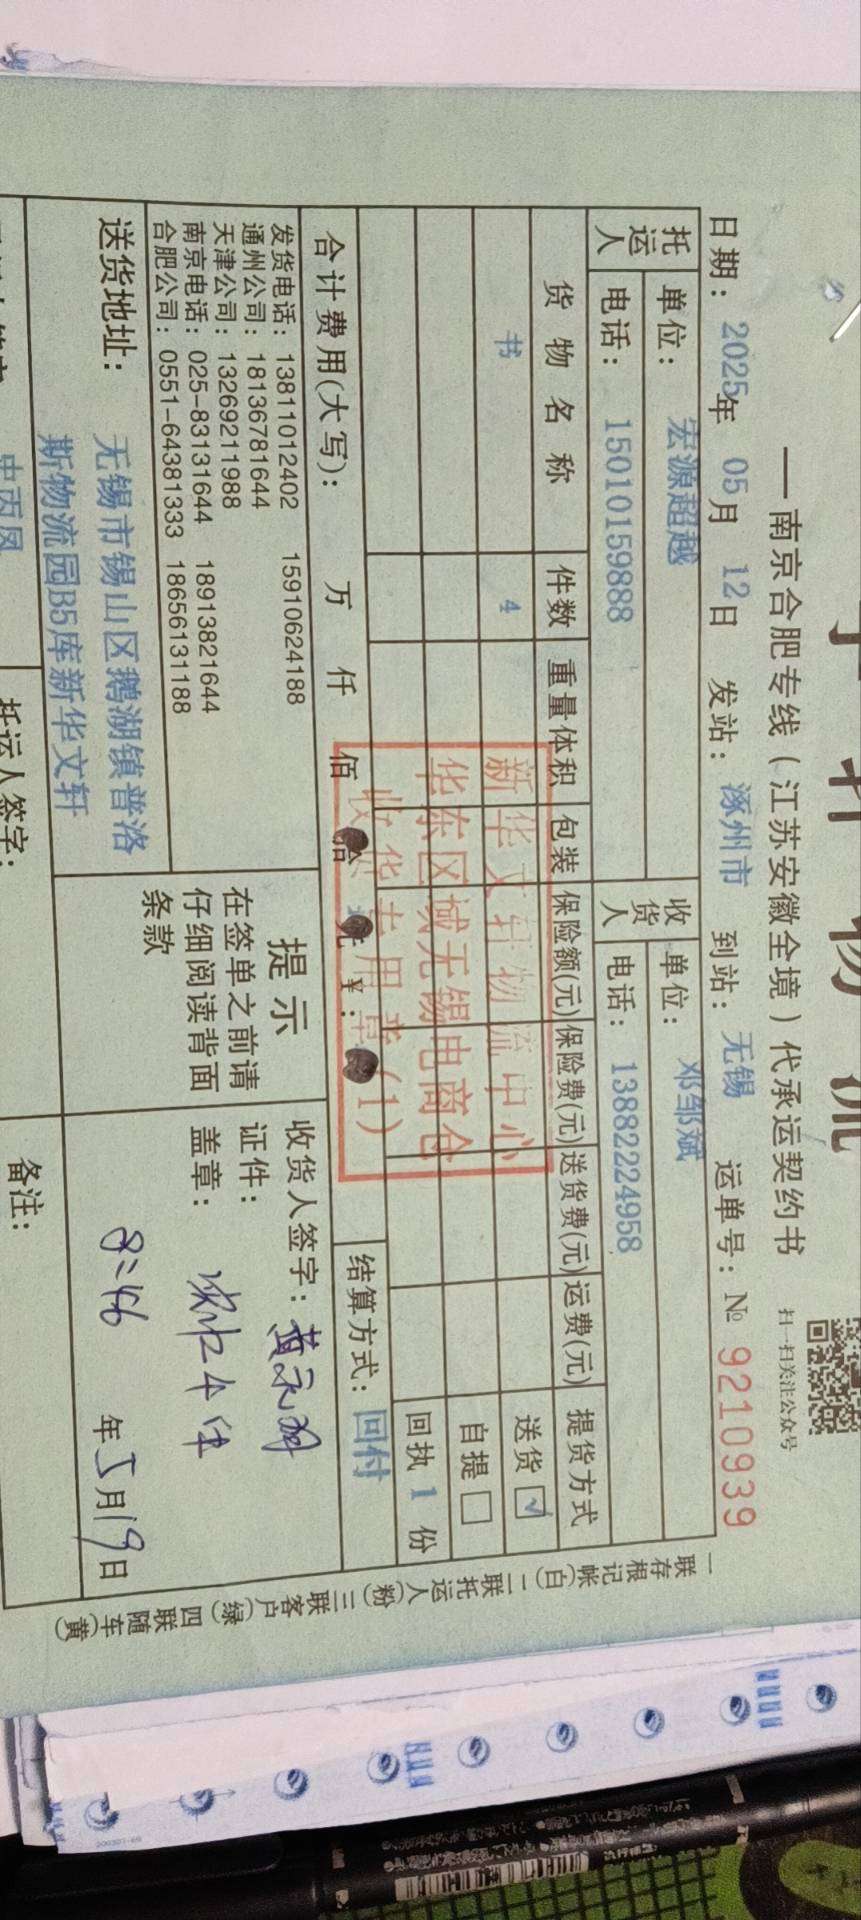 南京合肥专线(江苏安徽全境)代承运契约书
扫一扫关注公众号
日期: 2025年 05月 12日 发站: 涿州市 到站: 无锡 运单号: № 9210939
托运人 单位: 宏源超越 收货人 单位: 邓邹斌
电话: 15010159888 电话: 13882224958
货物名称 件数 重量体积 包装 保险额(元) 保险费(元) 送货费(元) 运费(元) 提货方式
书 4 送货 ☑
自提 □
回执 1 份
合计费用(大写): 万 仟 佰 拾 元 ¥: 结算方式: 回付
新华文轩物流中心
华东区域无锡电商仓
收货专用章(1)
发货电话: 13811012402 15910624188
通州公司: 18136781644
天津公司: 13269211988
南京电话: 025-83131644 18913821644
合肥公司: 0551-64381333 18656131188
提示
在签单之前请
仔细阅读背面
条款
收货人签字:
证件:
盖章:
8:46
年5月19日
送货地址: 无锡市锡山区鹅湖镇普洛
斯物流园B5库新华文轩
托运人签字:
备注:
一联存根记帐(白) 二联托运人(粉) 三联客户(绿) 四联随车(黄)